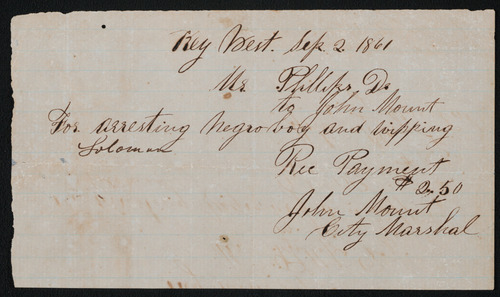 Key West. Sep 2 1861
Mr. Phillips Dr
to John Mount
For arresting negro boy and wipping
Soloman
Rec Payment
$ 2.50
John Mount
City Marshal